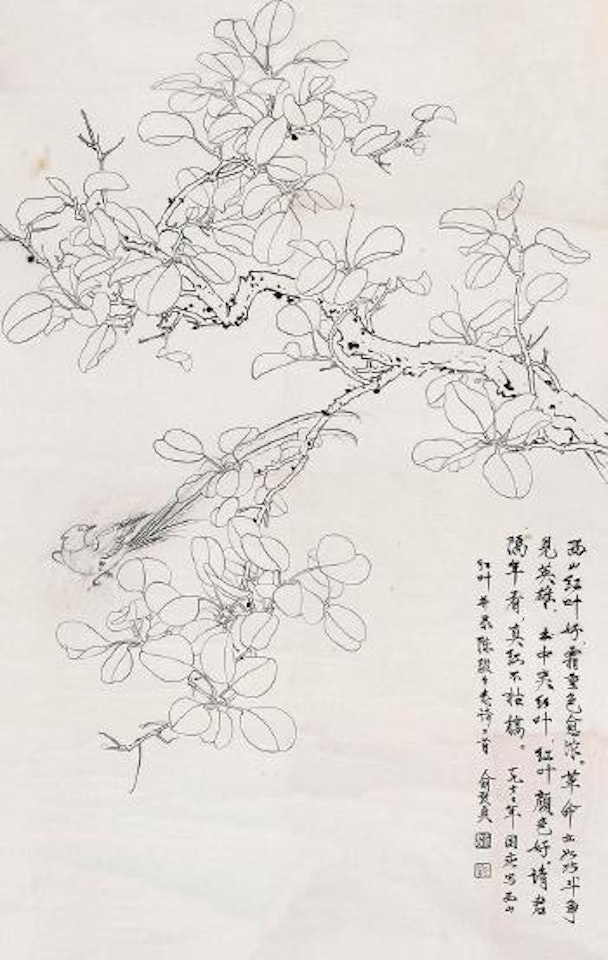 西山红叶好，霜重色愈浓。革命亦如此斗争
见英雄．书中夹红叶，红叶颜色好，请君
隔年看，真红不枯槁。一九七七年国庆写西山
红叶并录陈毅同志诗二首 俞致贞